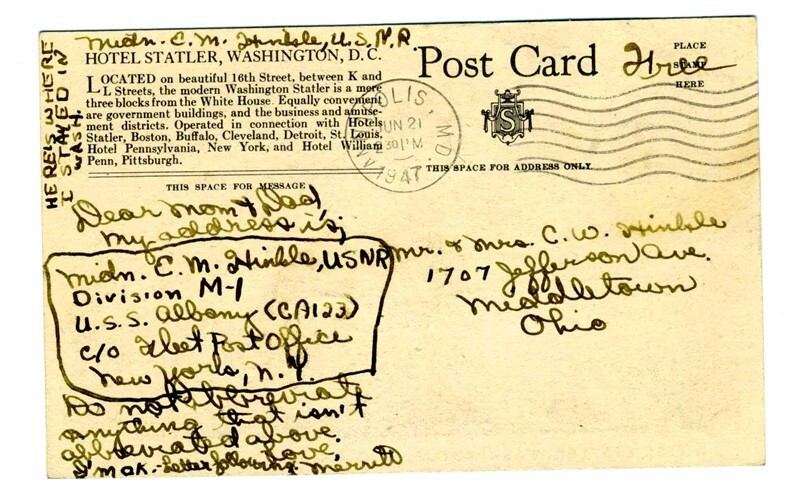 Midn. C. M. Hinkle, U.S.N.R.
HOTEL STATLER, WASHINGTON, D. C.
LOCATED on beautiful 16th Street, between K and
L Streets, the modern Washington Statler is a mere
three blocks from the White House. Equally convenient
are government buildings, and the business and amuse-
ment districts. Operated in connection with Hotels
Statler, Boston, Buffalo, Cleveland, Detroit, St. Louis,
Hotel Pennsylvania, New York, and Hotel William
Penn, Pittsburgh.
HERE'S WHERE
I STAYED IN
WASH.
Post Card
Free
PLACE
STAMP
HERE
S
JUN 21
30 PM
1947
MD.
THIS SPACE FOR MESSAGE
THIS SPACE FOR ADDRESS ONLY
Dear Mom & Dad,
My address is;
Midn. C. M. Hinkle, USNR
Division M-1
U.S.S. Albany (CA123)
c/o Fleet Post Office
New York, N.Y.
Do not abbreviate
anything that isn't
abbreviated above.
Love,
I'm ok.-Letter following Merritt
Mr. & Mrs. C. W. Hinkle
1707 Jefferson Ave.
Middletown
Ohio